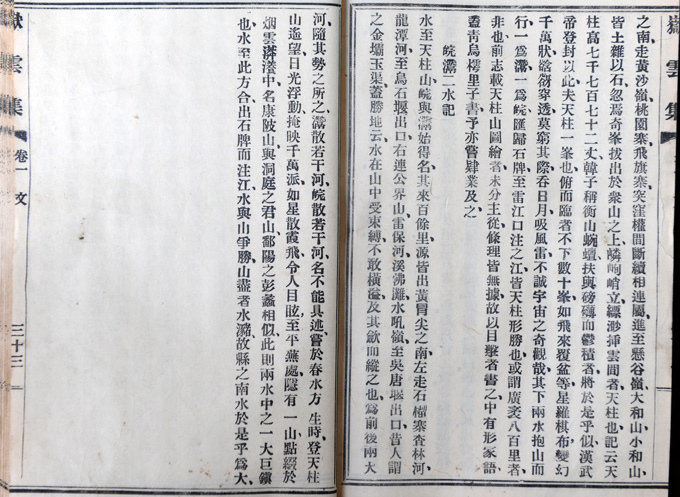 嶽雲集
之南走黃沙嶺桃園寨飛旗寨突窪權間斷續相連屬進至懸谷嶺大和山小和山
皆土雜以石忽焉奇峯拔出於衆山之上嶙峋峭立縹渺挿雲間者天柱也記云天
柱高七千七百七十二丈韓子稱衡山蜿蟺扶輿磅礴而鬱積者將於是乎似漢武
帝登封以此夫天柱一峯也俯而臨者不下數十峯如飛來覆盆等星羅棋布變幻
千萬狀谽谺穿透莫窮其際吞日月吸風雷不誠宇宙之奇觀哉其下兩水抱山而
行一爲灊一爲皖匯歸石牌至雷江口注之江皆天柱形勝也或謂廣袤八百里者
非也前志載天柱山圖繪者未分王從條理皆無據故以目擊者書之中有形家語
蓋青烏樗里子書予亦嘗肄業及之
皖灊二水記
水至天柱山皖與灊始得名其來百餘里源皆出黃冐尖之南左走石權寨査林河
龍潭河至烏石堰出口右連公界山雷保河溪沸灘水吼嶺至吳唐堰出口昔人謂
之金壩玉渠蓋勝地云水在山中受束縛不敢橫溢及其歛而縱之也爲前後兩大
河隨其勢之所之灊散若干河皖散若干河名不能具述嘗於春水方生時登天柱
山遙望日光浮動掩映千萬派如星散霞飛令人目眩至平蕪處隱有一山點綴於
烟雲漭漭中名康陂山與洞庭之君山鄱陽之彭蠡相似此則兩水中之一大巨鎮
也水至此方合出石牌而注江水與山爭勝山盡者水瀦故縣之南水於是乎爲大
嶽雲集
卷一
文
三十三